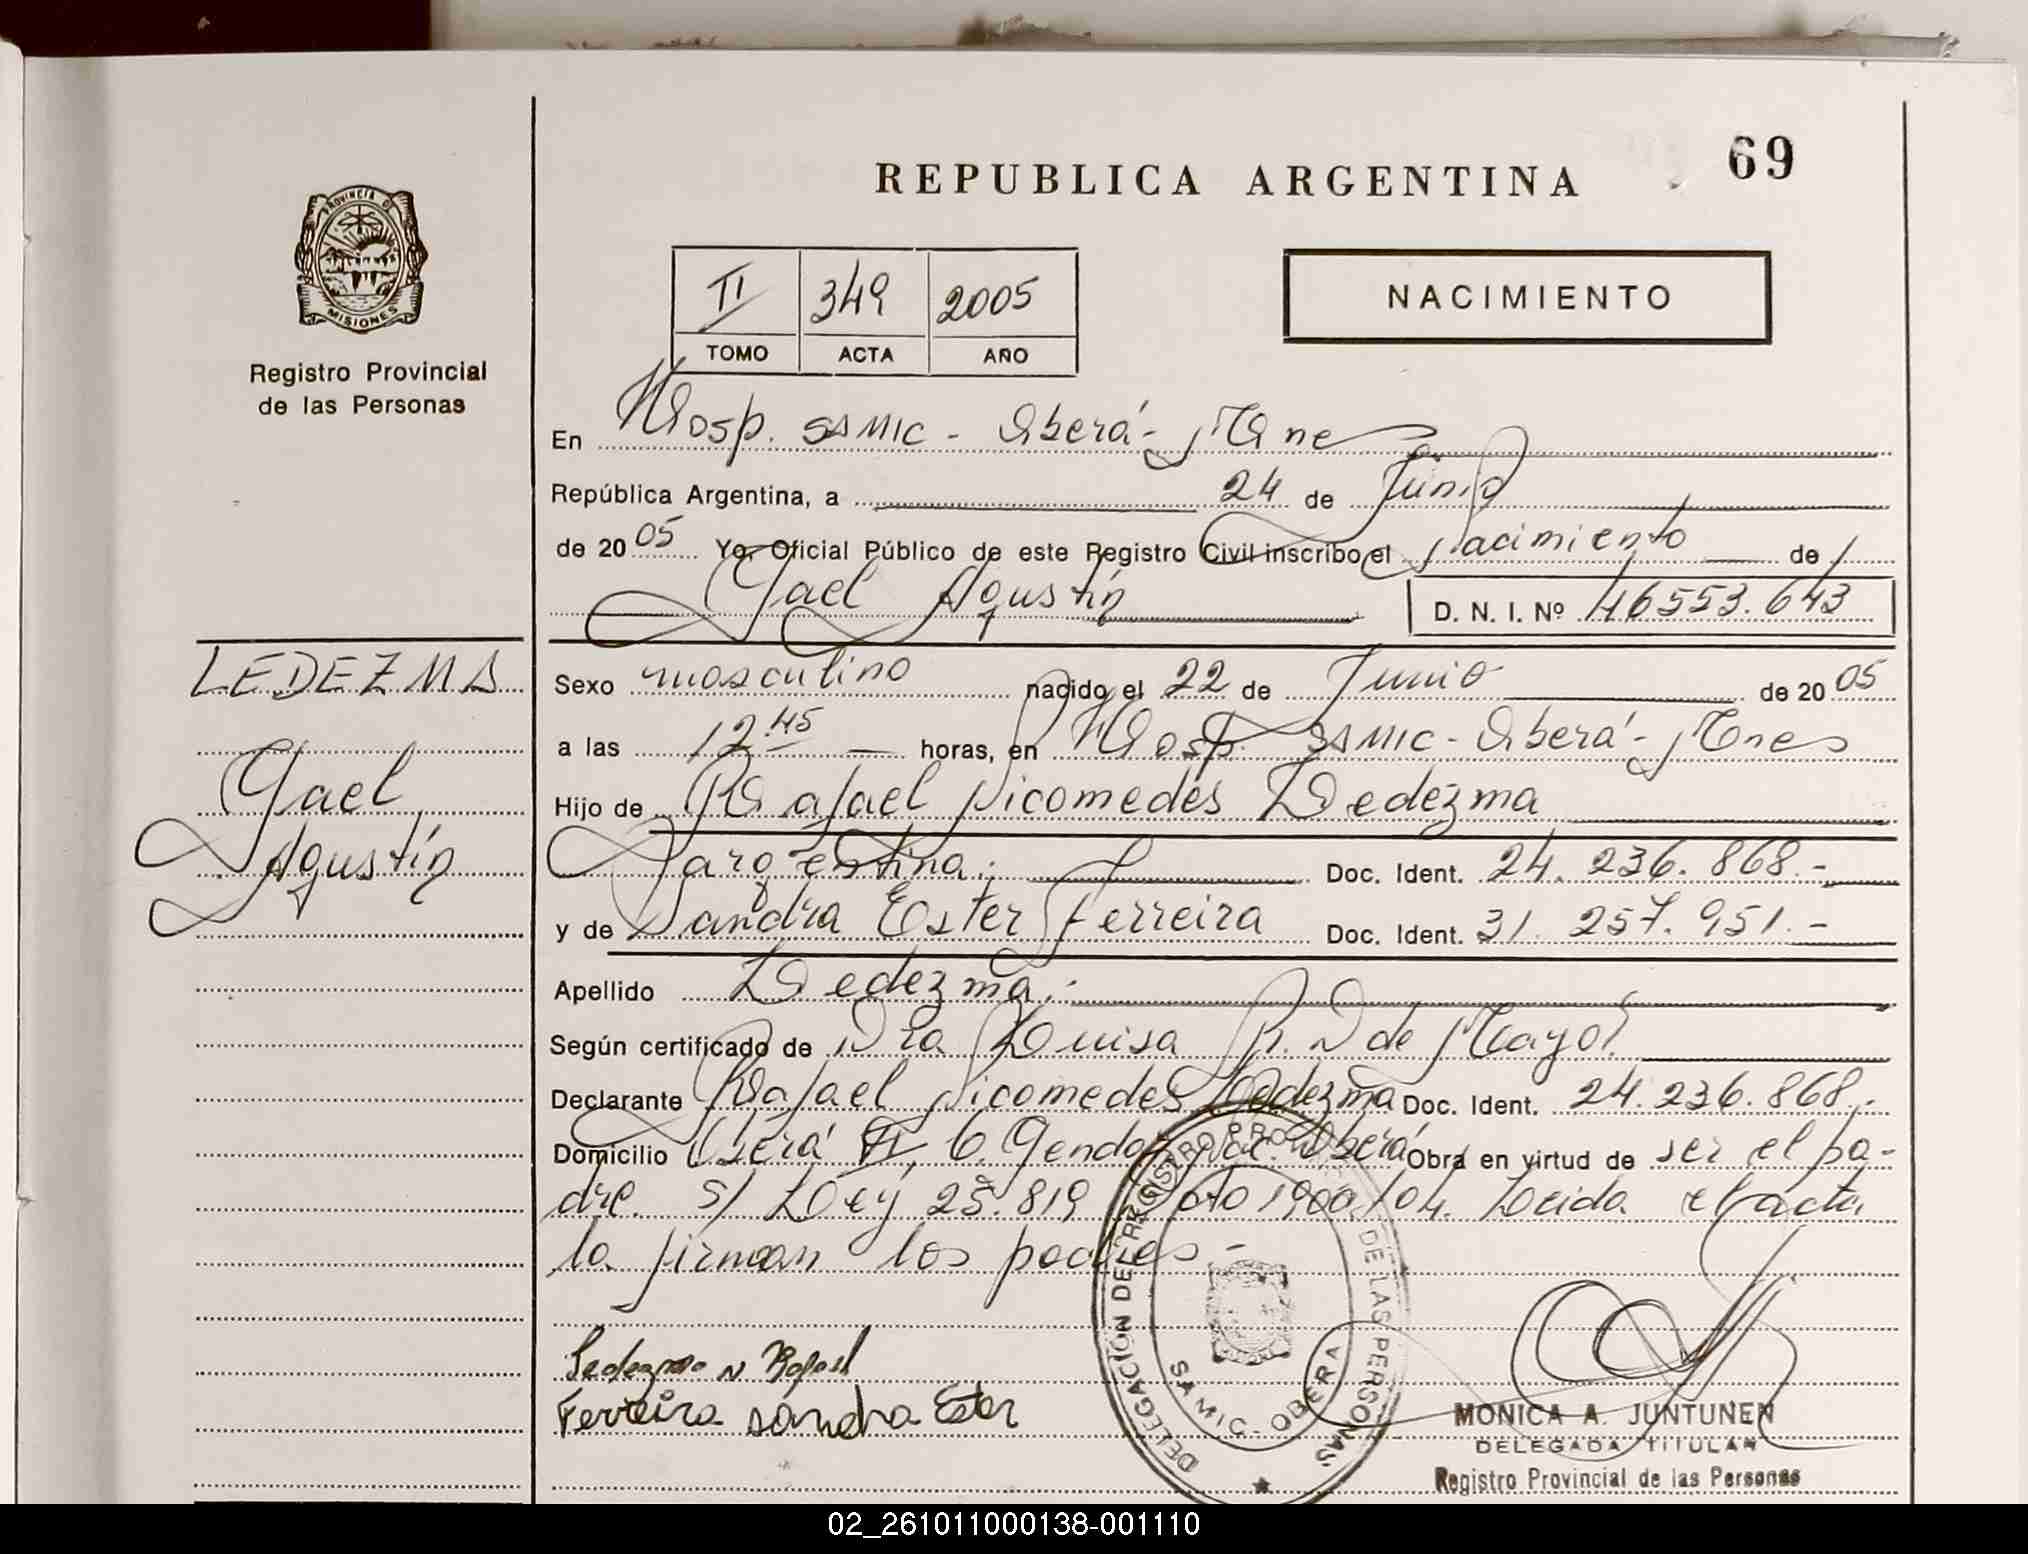 REPUBLICA ARGENTINA
69
PROVINCIA DE
MISIONES
Registro Provincial
de las Personas
II 349 2005
TOMO ACTA AÑO
NACIMIENTO
En Hosp. SAMIC - Oberá - Mnes
República Argentina, a 24 de Junio
de 2005 Yo, Oficial Público de este Registro Civil inscribo el nacimiento de
Gael Agustín D. N. I. Nº 46553.643
LEDEZMA
Gael
Agustín
Sexo masculino nacido el 22 de Junio de 2005
a las 12.45 horas, en Hosp. SAMIC - Oberá - Mnes
Hijo de Rafael Nicomedes Ledezma
argentina. Doc. Ident. 24.236.868.-
y de Sandra Ester Ferreira Doc. Ident. 31.257.951.-
Apellido Ledezma.-
Según certificado de Dra Luisa R. D de Mayol
Declarante Rafael Nicomedes Ledezma Doc. Ident. 24.236.868.-
Domicilio Oberá II, C. Oberá Obra en virtud de ser el pa-
dre. s/ Ley 25.819 Dto 1900/04. Leida el acta
la firman los padres -
Ledezma N Rafael
Ferreira Sandra Ester
DELEGACION DEL REGISTRO PROVINCIAL DE LAS PERSONAS
SAMIC - OBERA
MONICA A. JUNTUNEN
DELEGADA TITULAR
Registro Provincial de las Personas
02_261011000138-001110